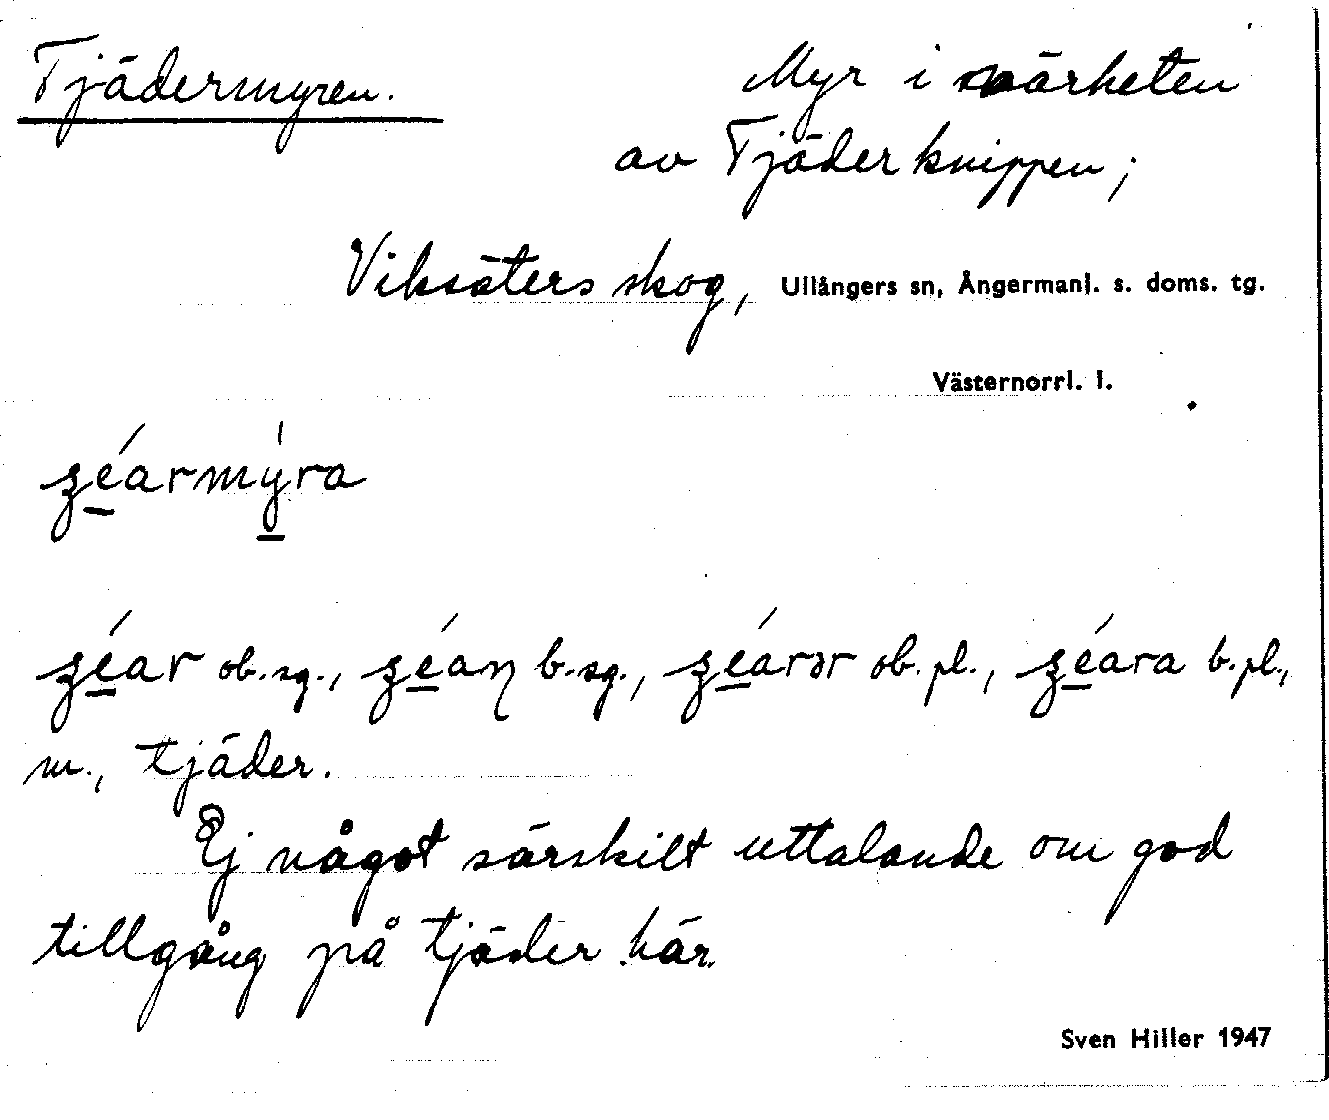 Tjädermyren. Myr i närheten
av Tjäderknippen;
Viksäters skog, Ullångers sn, Ångermanl. s. doms. tg.
Västernorrl. l.
ʒéarmýra
ʒéar ob. sg., ʒéaɳ b. sg., ʒéarər ob. pl., ʒéara b. pl.,
m., tjäder.
Ej något särskilt uttalande om god
tillgång på tjäder här.
Sven Hiller 1947